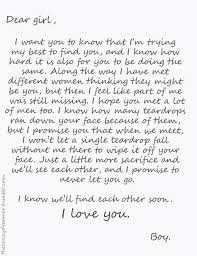 Dear girl,
I want you to know that I'm trying
my best to find you, and I know how
hard it is also for you to be doing the
same. Along the way I have met
different women thinking they might
be you, but then I feel like part of me
was still missing. I hope you met a lot
of men too. I know how many teardrops
ran down your face because of them,
but I promise you that when we meet,
I won't let a single teardrop fall
without me there to wipe it off your
face. Just a little more sacrifice and
we'll see each other, and I promise to
never let you go.
I know we'll find each other soon.
I love you.
Boy.